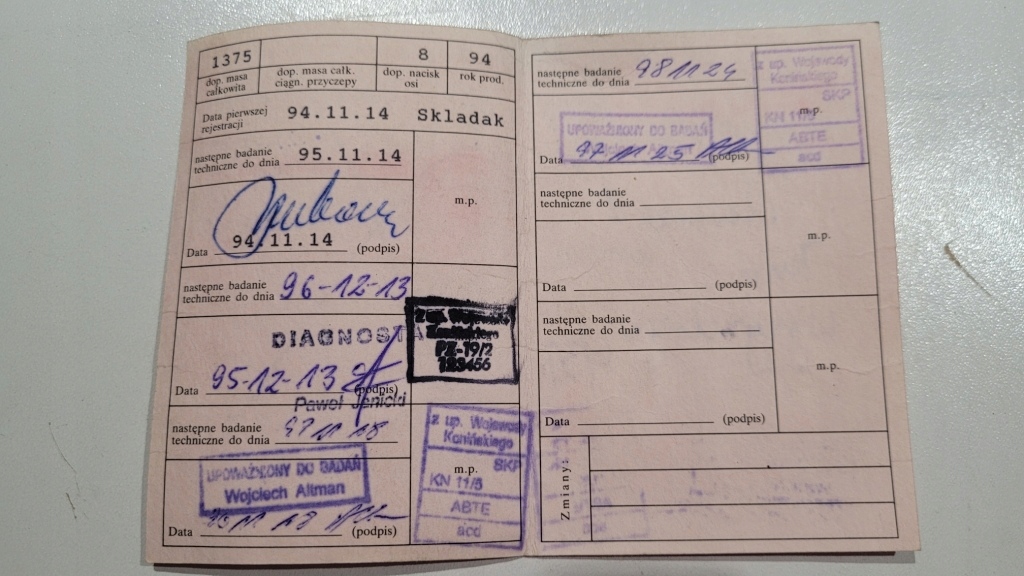 1375 8 94
dop. masa całkowita
dop. masa całk. ciągn. przyczepy
dop. nacisk osi
rok prod.
Data pierwszej rejestracji 94.11.14 Skladak
następne badanie techniczne do dnia 95.11.14
m.p.
Data 94.11.14 (podpis)
następne badanie techniczne do dnia 96-12-13
DIAGNOSTA
z up. Wojewody
PZ-19/2
123456
Data 95-12-13 (podpis)
Paweł Janicki
następne badanie techniczne do dnia 97 11 18
UPOWAŻNIONY DO BADAŃ
Wojciech Altman
Data 96 11 18 (podpis)
z up. Wojewody
Konińskiego
SKP
m.p.
KN 11/5
ABTE
acd
następne badanie techniczne do dnia 98 11 24
z up. Wojewody
Konińskiego
SKP
m.p.
KN 11/5
ABTE
acd
UPOWAŻNIONY DO BADAŃ
Data 97 11 25 (podpis)
następne badanie techniczne do dnia
m.p.
Data (podpis)
następne badanie techniczne do dnia
m.p.
Data (podpis)
Zmiany: